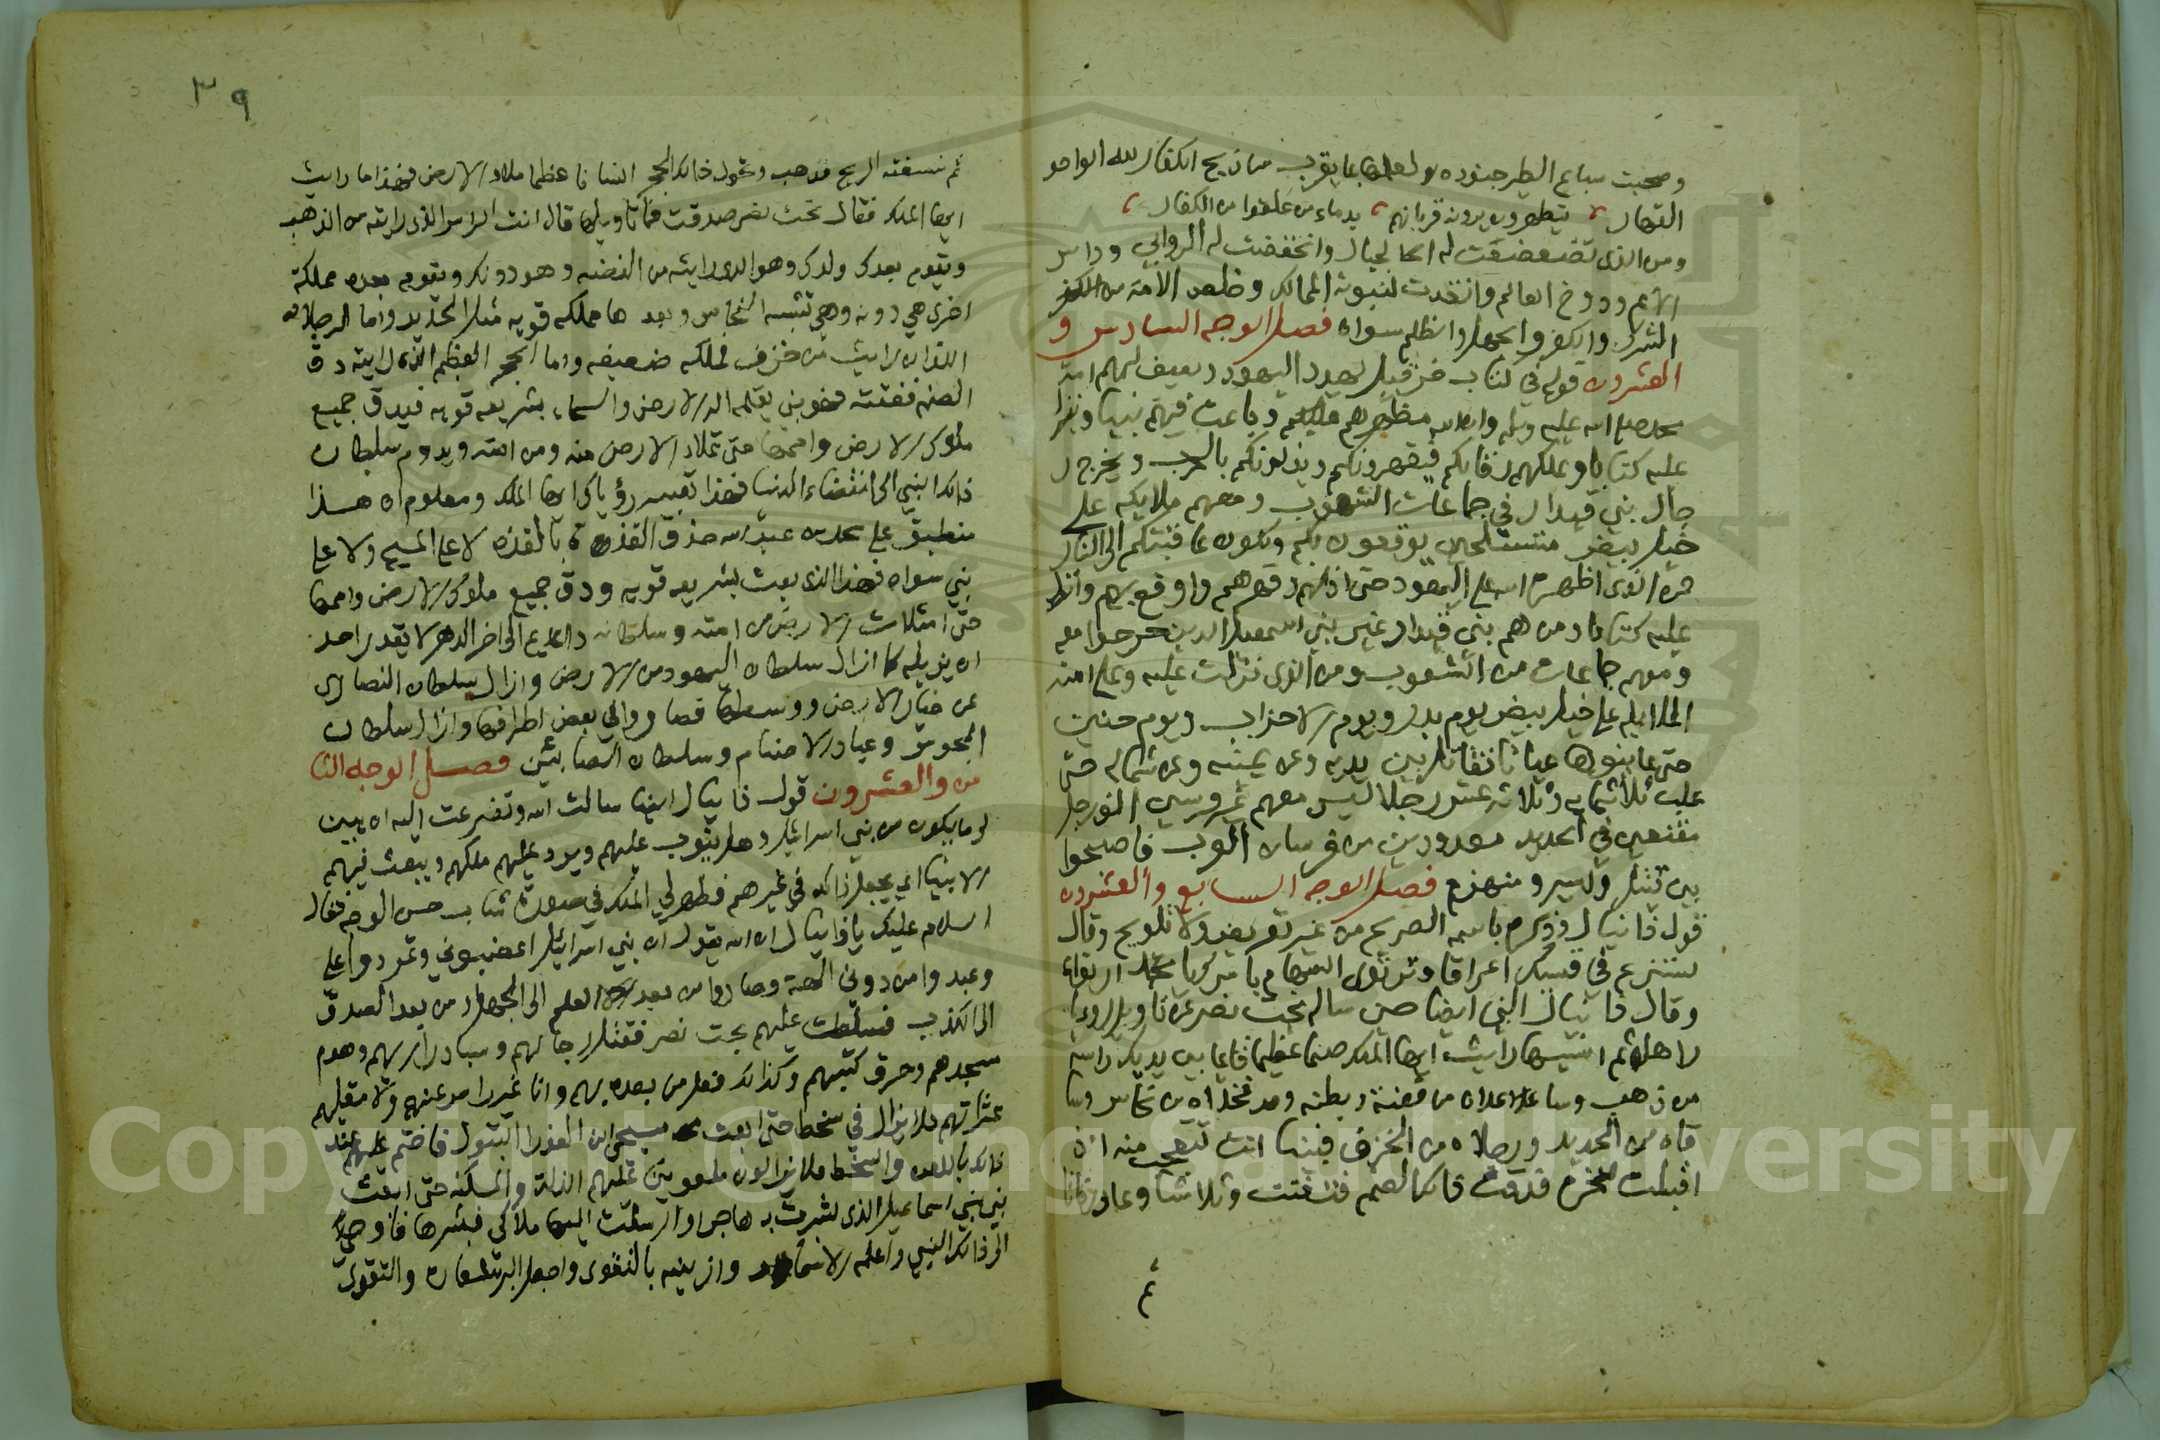 وصحبت سباع الطير جنوده ولعلها بما يقرب من ذبح الكفار لله الواحد
القهار، يتطهرون يرونه قربانهم، بدماء من علقوا من الكفار،
ومن الذي تضعضعت له الجبال وانخفضت له الروابي وداس
الأمم ودوخ العالم وانقدت لنبوته الممالك وخلص الأمة من
الشرك والكفر والجهل والظلم سواه فصل الوجه السادس و
العشرون قوله في كتاب حزقيل يهدد اليهود ويصف لهم أمة
محمد صلى الله عليه وسلم وان الله مظهرهم عليكم وباعث فيهم نبيا وينزل
عليه كتابا ويملكهم رقابكم فيقهرونكم ويذلونكم بالحق ويخرج ر
جال بني قيدار في جماعات الشعوب ومعهم ملايكة على
خيل بيض متسلحين يوقعون بكم وتكون عاقبتكم الى النار
فمن الذي اظهره الله على اليهود حتى اذلهم وقهرهم واوقع بهم وانزل
عليه كتابا ومن هم بني قيدار غير بني اسمعيل الذين خرجوا معه
ومعهم جماعات من الشعوب ومن الذي نزلت عليه وعلى امته
الملايكة على خيل بيض يوم بدر ويوم الاحزاب ويوم حنين
حتى عاينوها عيانا تقاتل بين يديه وعن يمينه وعن شماله حتى
غلب ثلاثمايه وثلاثة عشر رجلا ليس معهم غير فرسين الف رجل
مقنعين في الحديد معدودين من فرسان العرب فاصبحوا
بين قتيل واسير ومنهزم فصل الوجه السابع والعشرون
قول دانيال وذكره باسمه الصريح من غير تعريض ولا تلويح وقال
ستنزع في قسيك اغراقا وترتوي السهام بامرك يا محمد ارتواء
وقال دانيال النبي ايضا حين ساله بخت نصر عن تاويل رؤيا
راها ثم انسيها رايت ايها الملك صنما عظيما قايما بين يديك راسه
من ذهب وساعداه من فضة وبطنه وفخذاه من نحاس وسا
قاه من الحديد ورجلاه من الخزف فبينا انت تتعجب منه اذ
اقبلت صخرة فدقت ذلك الصنم فتفتت وتلاشا وعاد رفاتا
ثم
٣٩
ثم نسفته الريح فذهب وتحول ذلك الحجر انسانا عظيما ملاء الارض فهذا ما رايت
ايها الملك فقال بخت نصر صدقت فما تاويلها قال انت الراس الذي رايته من الذهب
ويقوم بعدك ولدك وهو الذي رايته من الفضه وهو دونك ويقوم بعده مملكة
اخرى هي دونه وهي تشبه النحاس وبعد ها مملكه قويه مثل الحديد واما الرجلان
اللذان رايت من خزف فملكه ضعيفه واما الحجر العظيم الذي رايته دق
الصنم ففتته فهو نبي يقيمه اله الارض والسماء بشريعه قويه فيدق جميع
ملوك الارض واممها حتى تملاء الارض منه ومن امته ويدوم سلطان
ذلك النبي الى انقضاء الدنيا فهذا تعبير رؤياك ايها الملك ومعلوم ان هذا
منطبق على محمد بن عبد الله حذو القذة بالقذه لا على المسيح ولا على
نبي سواه فهذا الذي بعث بشريعه قويه ودق جميع ملوك الارض واممها
حتى امتلات الارض من امته وسلطانه دائم الى اخر الدهر لا يقدر احد
ان يزيله كما ازال سلطان اليهود من الارض وازال سلطان النصارى
عن خيار الارض ووسطها فصار والي بعض اطرافها وازال سلطان
المجوس وعباد الاصنام وسلطان الصابئين فصل الوجه الثا
من والعشرون قول دانيال ايضا سالت الله وتضرعت اليه ان يبين
لي ما يكون من بني اسرائيل وهل يتوب عليهم ويرد عليهم ملكهم ويبعث فيهم
الانبياء او يجعل ذلك في غيرهم فظهر لي الملك في صورة شاب حسن الوجه فقال
السلام عليك يا دانيال ان الله يقول ان بني اسرائيل اغضبوني وتمردوا علي
وعبدوا من دوني الهة وصاروا من بعد العلم الى الجهل ومن بعد الصدق
الى الكذب فسلطت عليهم بخت نصر فقتل رجالهم وسبا ذراريهم وهدم
مسجدهم وحرق كتبهم وكذلك فعل من بعده بهم وانا غير راض عنهم ولا مقيلهم
عثراتهم فلا يزال في سخطي حتى ابعث مسيحي ابن العذرا البتول فاختم عليهم عند
ذلك باللعن والسخط فلا يزالون ملعونين عليهم الذلة والمسكنه حتى ابعث
نبي بني اسماعيل الذي بشرت به هاجر وارسلت اليها ملاكي فبشرها فاوحي
الى ذلك النبي واعلمه الاسماء وازينه بالتقوى واجعل البر شعاره والتقوى